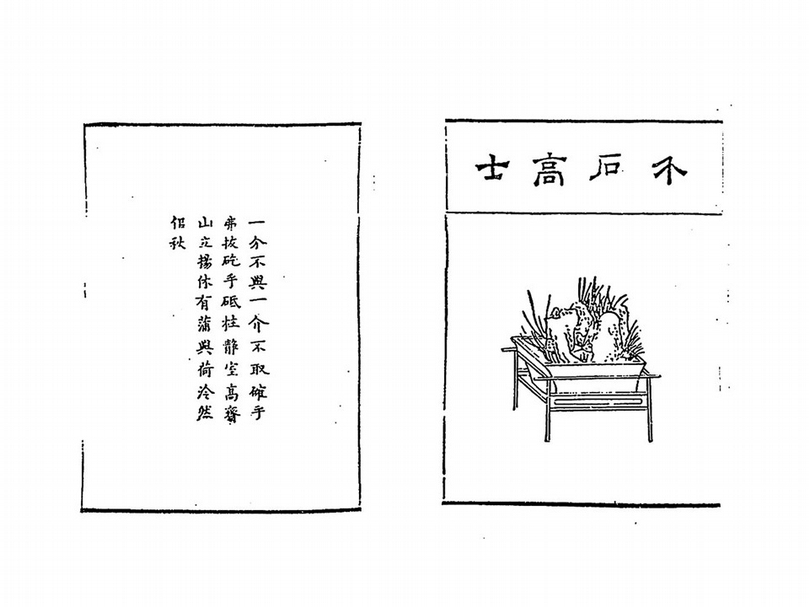 介石高士
一介不與一介不取確乎
弗拔矻乎砥柱靜室高齋
山立揚休有蒲與荷泠然
侶秋